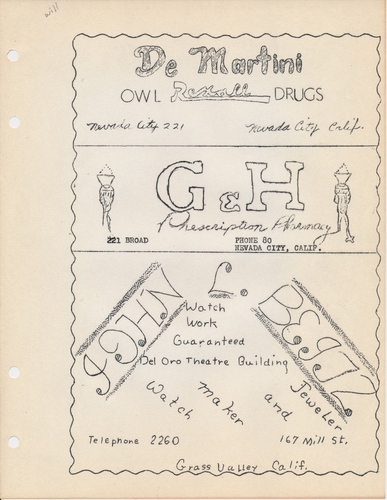 De Martini
OWL Rexall DRUGS
Nevada City 221 Nevada City Calif.
G & H
Prescription Pharmacy
221 BROAD PHONE 80
NEVADA CITY, CALIF.
JOHN L. BETZ
Watch
Work
Guaranteed
Del Oro Theatre Building
Watch Maker and Jeweler
Telephone 2260 167 Mill St.
Grass Valley Calif.